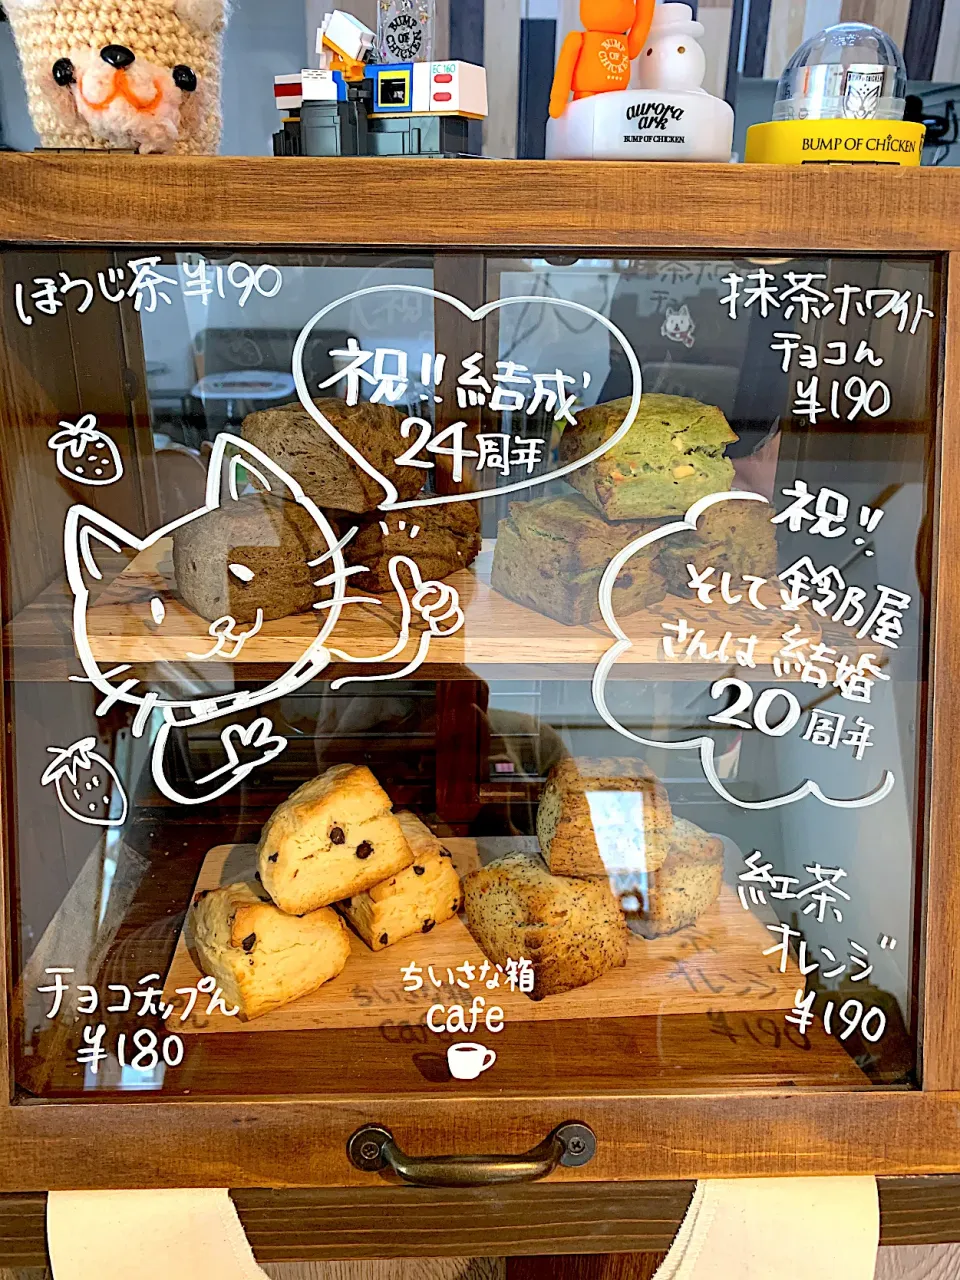 BUMP
OF
CHICKEN
EC 160
BUMP
OF
CHICKEN
aurora
ark
BUMP OF CHICKEN
BUMP OF CHICKEN
ほうじ茶 ¥190
抹茶ホワイト
チョコん
¥190
祝!!結成
24周年
祝!!
そして鈴乃屋
さんは結婚
20周年
紅茶
オレンジ
¥190
チョコチップん
¥180
ちいさな箱
cafe